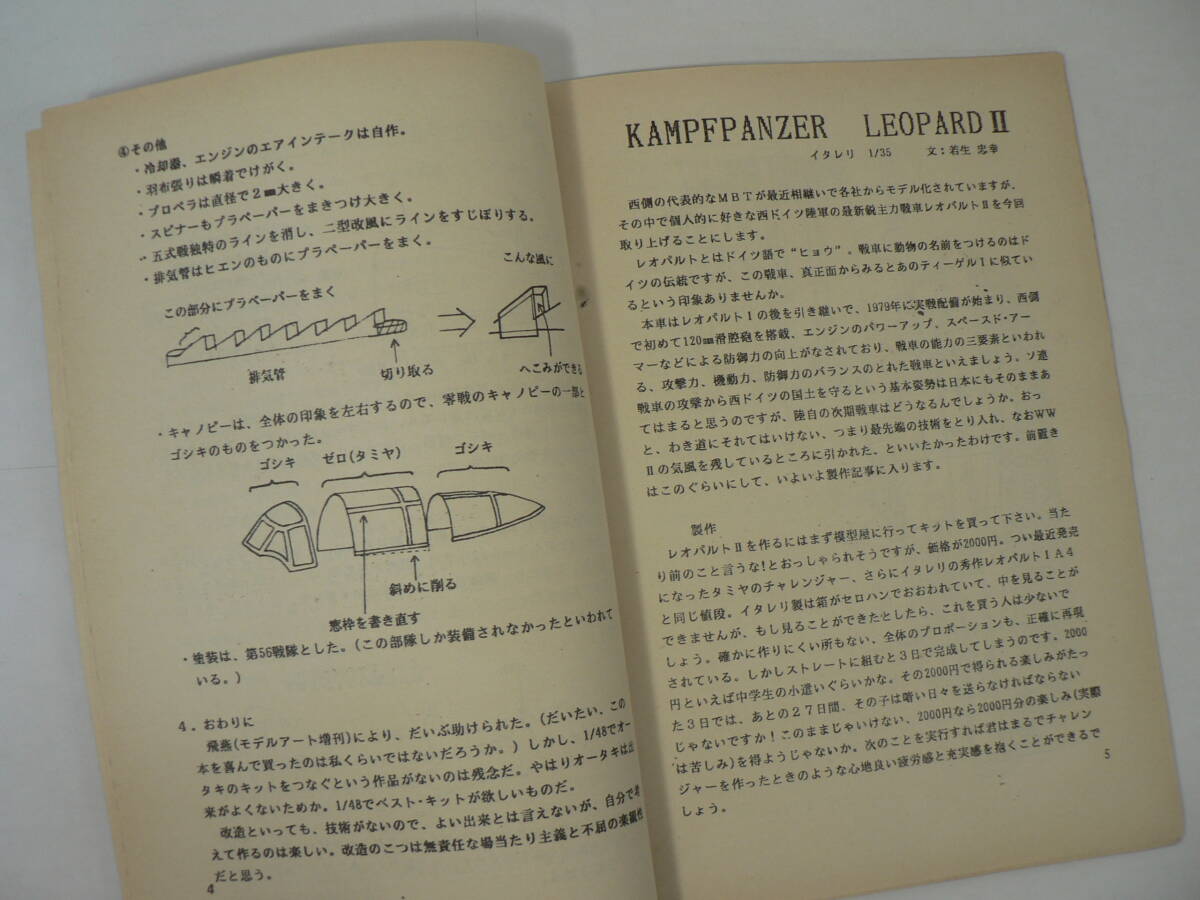 ④その他
・冷却器、エンジンのエアインテークは自作。
・羽布張りは瞬着でけがく。
・プロペラは直径で2㎜大きく。
・スピナーもプラペーパーをまきつけ大きく。
・五式戦独特のラインを消し、二型改風にラインをすじぼりする。
・排気管はヒエンのものにプラペーパーをまく。
こんな風に
この部分にプラペーパーをまく
排気管
切り取る
へこみができる
・キャノピーは、全体の印象を左右するので、零戦のキャノピーの一部と
ゴシキのものをつかった。
ゴシキ ゼロ(タミヤ) ゴシキ
斜めに削る
窓枠を書き直す
・塗装は、第56戦隊とした。(この部隊しか装備されなかったといわれて
いる。)
4．おわりに
飛燕(モデルアート増刊)により、だいぶ助けられた。(だいたい、この
本を喜んで買ったのは私くらいではないだろうか。)しかし、1/48でオー
タキのキットをつなぐという作品がないのは残念だ。やはりオータキは出
来がよくないためか。1/48でベスト・キットが欲しいものだ。
改造といっても、技術がないので、よい出来とは言えないが、自分で考
えて作るのは楽しい。改造のこつは無責任な場当たり主義と不屈の楽観性
だと思う。
4
KAMPFPANZER LEOPARD II
イタレリ 1/35 文：若生 忠幸
西側の代表的なMBTが最近相継いで各社からモデル化されていますが、
その中で個人的に好きな西ドイツ陸軍の最新鋭主力戦車レオパルトⅡを今回
取り上げることにします。
レオパルトとはドイツ語で“ヒョウ”。戦車に動物の名前をつけるのはド
イツの伝統ですが、この戦車、真正面からみるとあのティーゲルⅠに似てい
るという印象ありませんか。
本車はレオパルトⅠの後を引き継いで、1979年に実戦配備が始まり、西側
で初めて120㎜滑腔砲を搭載、エンジンのパワーアップ、スペースド・アー
マーなどによる防御力の向上がなされており、戦車の能力の三要素といわれ
る、攻撃力、機動力、防御力のバランスのとれた戦車といえましょう。ソ連
戦車の攻撃から西ドイツの国土を守るという基本姿勢は日本にもそのままあ
てはまると思うのですが、陸自の次期戦車はどうなるんでしょうか。おっ
と、わき道にそれてはいけない、つまり最先端の技術をとり入れ、なおWW
Ⅱの気風を残しているところに引かれた、といいたかったわけです。前置き
はこのぐらいにして、いよいよ製作記事に入ります。
製作
レオパルトⅡを作るにはまず模型屋に行ってキットを買って下さい。当た
り前のこと言うな!とおっしゃられそうですが、価格が2000円。つい最近発売
になったタミヤのチャレンジャー、さらにイタレリの秀作レオパルト1A4
と同じ値段。イタレリ製は箱がセロハンでおおわれていて、中を見ることが
できませんが、もし見ることができたとしたら、これを買う人は少ないで
しょう。確かに作りにくい所もない、全体のプロポーションも、正確に再現
されている。しかしストレートに組むと3日で完成してしまうのです。2000
円といえば中学生の小遣いぐらいかな。その2000円で得られる楽しみがたっ
た3日では、あとの27日間、その子は暗い日々を送らなければならない
じゃないですか!このままじゃいけない、2000円なら2000円分の楽しみ(実際
は苦しみ)を得ようじゃないか。次のことを実行すれば君はまるでチャレン
ジャーを作ったときのような心地良い疲労感と充実感を抱くことができるで
しょう。
5